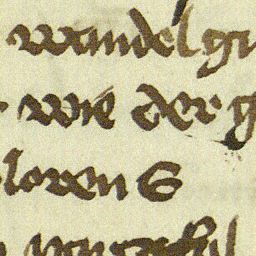 wandel gu
wie der g
loren S